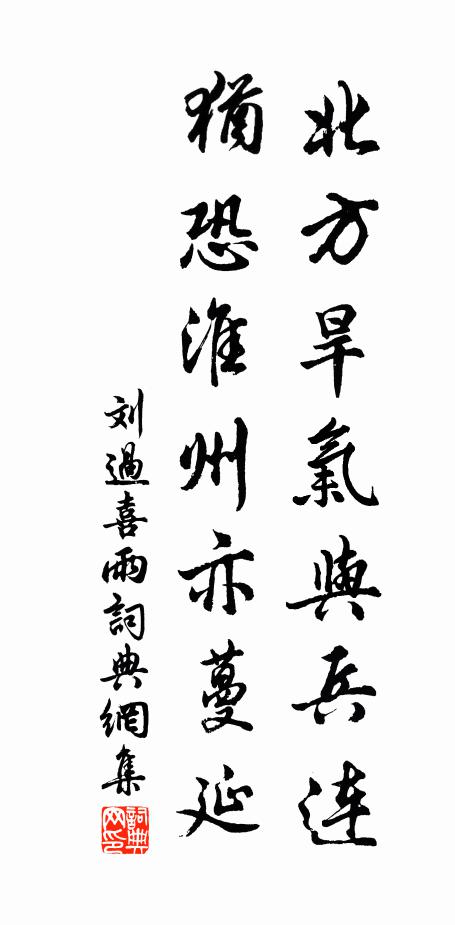 北方旱氣與兵连
猶恐淮州亦蔓延
刘過喜雨詞典網集
詞典网印